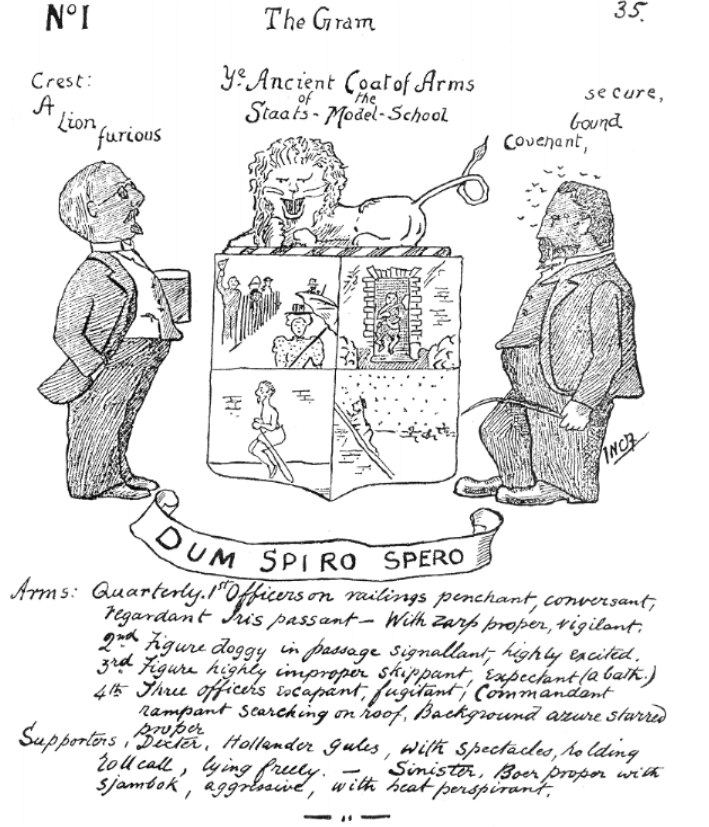 No 1 The Gram 35.
Crest:
A
Lion
furious
Ye Ancient Coat of Arms
of the
Staats-Model-School
secure,
bound
Covenant,
INCE
DUM SPIRO SPERO
Arms: Quarterly. 1st Officers on railings penchant, conversant,
regardant Iris passant — With zarp proper, vigilant.
2nd Figure doggy in passage signallant, highly excited.
3rd Figure highly improper skippant, expectant (a bath.)
4th Three officers escapant, fugitant; Commandant
rampant searching on roof, Background azure starred
proper
Supporters, Dexter, Hollander gules, with spectacles, holding
rollcall, lying freely. — Sinister, Boer proper with
sjambok, aggressive, with heat perspirant.